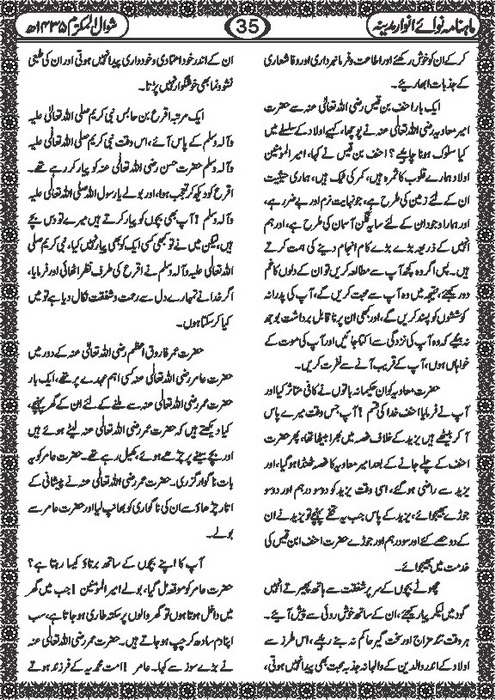 ماہنامہ نوائے انوار مدینہ
35
شوال المکرم ۱۴۳۵ھ
کر کے ان کو خوش رکھئے اور اطاعت و فرمانبرداری اور وفا شعاری
کے جذبات ابھاریے۔
ایک بار احنف بن قیس رضی اللہ تعالٰی عنہ سے حضرت
امیر معاویہ رضی اللہ تعالٰی عنہ نے پوچھا، کہیے اولاد کے سلسلے میں
کیا سلوک ہونا چاہیے؟ احنف بن قیس نے کہا، امیر المؤمنین
اولاد ہمارے قلوب کا ثمرہ ہیں، کمر کی ٹیک ہیں، ہماری حیثیت
ان کے لئے زمین کی طرح ہے، جو نہایت نرم اور بے ضرر ہے،
اور ہمارا وجود ان کے لئے سایہ فگن آسمان کی طرح ہے، اور ہم
انہیں کے ذریعہ بڑے بڑے کام انجام دینے کی ہمت کرتے
ہیں۔ پس اگر وہ کچھ آپ سے مطالبہ کریں تو ان کے دلوں کا غم
دور کیجئے، نتیجہ میں وہ آپ سے محبت کریں گے، آپ کی پدرانہ
کوششوں کو پسند کریں گے، اور کبھی ان پر ناقابل برداشت بوجھ
نہ بنئے کہ وہ آپ کی زندگی سے اکتا جائیں اور آپ کی موت کے
خواہاں ہوں، آپ کے قریب آنے سے نفرت کریں۔
حضرت معاویہ کو ان حکیمانہ باتوں نے کافی متاثر کیا اور
آپ نے فرمایا احنف خدا کی قسم! آپ جس وقت میرے پاس
آ کر بیٹھے ہیں یزید کے خلاف غصہ میں بھرا بیٹھا تھا، پھر حضرت
احنف کے چلے جانے کے بعد امیر معاویہ کا غصہ ٹھنڈا ہو گیا، اور
یزید سے راضی ہو گئے، اسی وقت یزید کو دو سو درہم اور دو سو
جوڑے بھجوائے، یزید کے پاس جب یہ تحفے پہنچے تو یزید نے ان
کے دو حصے کئے اور سو درہم اور جوڑے حضرت احنف ابن قیس کی
خدمت میں بھجوائے۔
چھوٹے بچوں کے سر پر شفقت سے ہاتھ پھیریے انہیں
گود میں لیکر پیار کیجئے، ان کے ساتھ خوش روئی سے پیش آئیے۔
ہر وقت تند مزاج اور سخت گیر حاکم نہ بنے رہئے، اس طرز سے
اولاد کے اندر والدین کے والہانہ جذبہ محبت بھی پیدا نہیں ہوتی،
ان کے اندر خود اعتمادی و خودداری پیدا نہیں ہوتی اور ان کی طبی
نشوونما بھی خوشگوار نہیں پڑتا۔
ایک مرتبہ اقرع بن حابس نبی کریم صلی اللہ تعالٰی علیہ
وآلہ وسلم کے پاس آئے، اس وقت نبی کریم صلی اللہ تعالٰی علیہ
وآلہ وسلم حضرت حسن رضی اللہ تعالٰی عنہ کو پیار کر رہے تھے۔
اقرع کو دیکھ کر تعجب ہوا، اور بولے یا رسول اللہ صلی اللہ تعالٰی علیہ
وآلہ وسلم! آپ بھی بچوں کو پیار کرتے ہیں میرے تو دس بچے
ہیں، لیکن میں نے تو کبھی کسی ایک کو بھی پیار نہیں کیا، نبی کریم صلی
اللہ تعالٰی علیہ وآلہ وسلم نے اقرع کی طرف نظر اٹھائی اور فرمایا،
اگر خدا نے تمہارے دل سے رحمت و شفقت نکال دیا ہے تو میں
کیا کر سکتا ہوں۔
حضرت عمر فاروق اعظم رضی اللہ تعالٰی عنہ کے دور میں
حضرت عامر رضی اللہ تعالٰی عنہ کسی اہم عہدے پر تھے، ایک بار
حضرت عمر رضی اللہ تعالٰی عنہ سے ملنے کے لئے ان کے گھر پہنچے،
کیا دیکھتے ہیں کہ حضرت عمر رضی اللہ تعالٰی عنہ لیٹے ہوئے ہیں
اور بچے سینے پر چڑھے ہوئے، کھیل رہے تھے۔ حضرت عامر کو یہ
بات ناگوار گزری۔ حضرت عمر رضی اللہ تعالٰی عنہ نے پیشانی کے
اتار چڑھاؤ سے ان کی ناگواری کو بھانپ لیا اور حضرت عامر سے
بولے۔
آپ کا اپنے بچوں کے ساتھ برتاؤ کیسا رہتا ہے؟
حضرت عامر کو موقعہ مل گیا، بولے امیر المؤمنین! جب میں گھر
میں داخل ہوتا ہوں تو گھر والوں پر سکتہ طاری ہو جاتا ہے، سب
اپنا دم سادھ کر چپ ہو جاتے ہیں۔ حضرت عمر رضی اللہ تعالٰی عنہ
نے بڑے سوز سے کہا۔ عامر! امت محمدیہ کے فرزند ہوتے